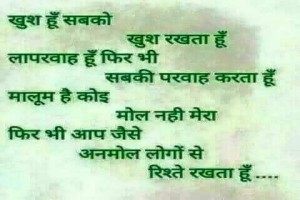 खुश हूँ सबको
खुश रखता हूँ
लापरवाह हूँ फिर भी
सबकी परवाह करता हूँ
मालूम है कोइ
मोल नही मेरा
फिर भी आप जैसे
अनमोल लोगों से
रिश्ते रखता हूँ ....